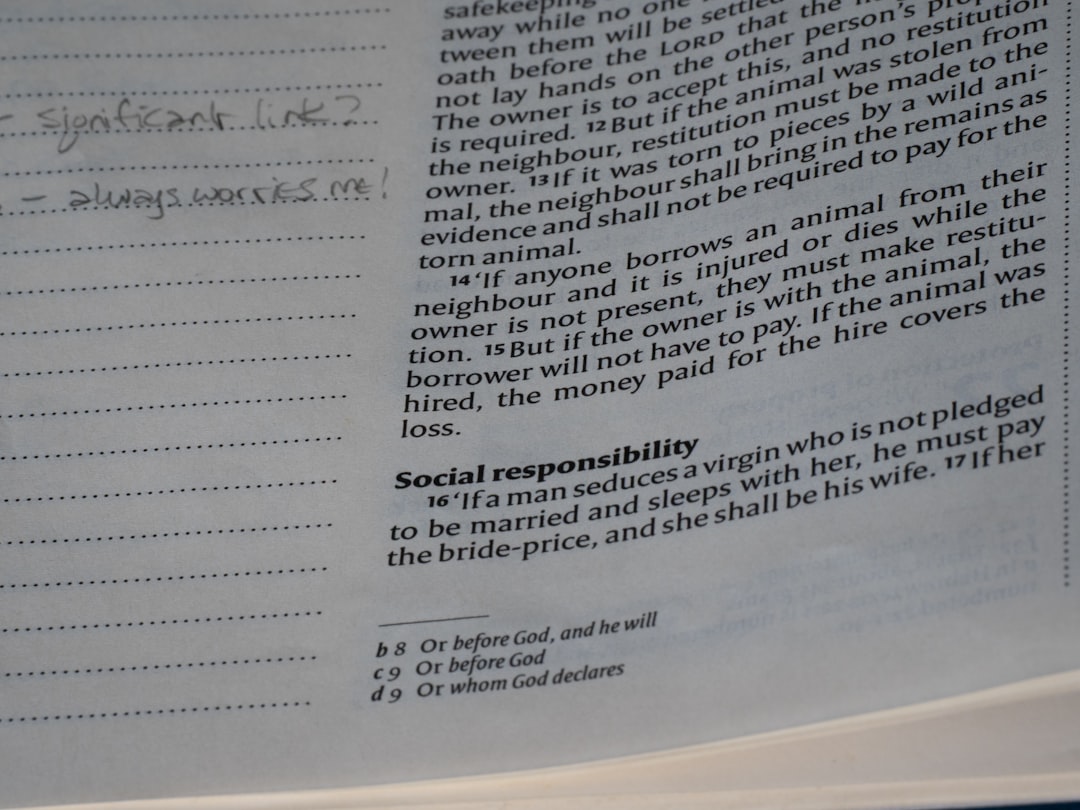 - significant link?
- always worries me!
safekeeping
away while no one
tween them will be settle
oath before the LORD that the
not lay hands on the other person's prop
The owner is to accept this, and no restitution
is required. 12 But if the animal was stolen from
the neighbour, restitution must be made to the
owner. 13 If it was torn to pieces by a wild ani-
mal, the neighbour shall bring in the remains as
evidence and shall not be required to pay for the
torn animal.
14 ‘If anyone borrows an animal from their
neighbour and it is injured or dies while the
owner is not present, they must make restitu-
tion. 15 But if the owner is with the animal, the
borrower will not have to pay. If the animal was
hired, the money paid for the hire covers the
loss.
Social responsibility
16 ‘If a man seduces a virgin who is not pledged
to be married and sleeps with her, he must pay
the bride-price, and she shall be his wife. 17 If her
b 8 Or before God, and he will
c 9 Or before God
d 9 Or whom God declares